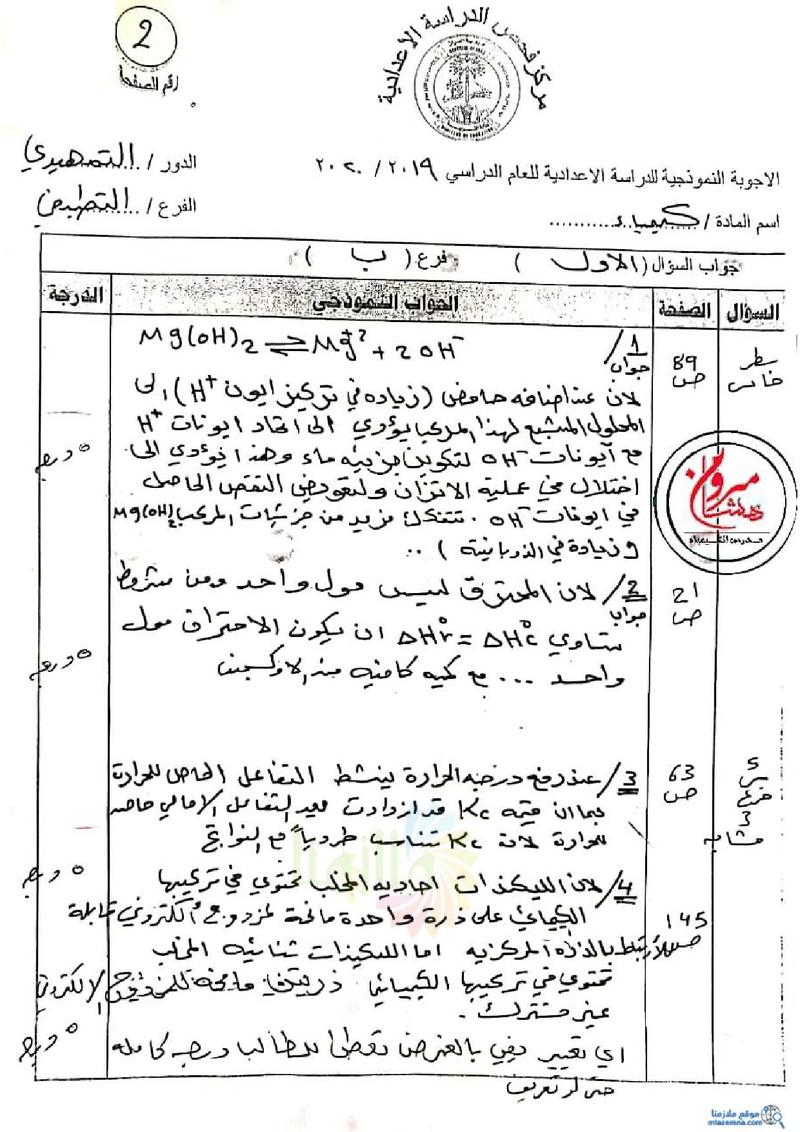 2
رقم الصفحة
مركز فحص الدراسة الاعدادية
الدور / التمهيدي
الاجوبة النموذجية للدراسة الاعدادية للعام الدراسي ٢٠١٩ / ٢٠٢٠
الفرع / التطبيقي
اسم المادة / كيمياء
جواب السؤال ( الاول ) فرع ( ب )
السؤال الصفحة الجواب النموذجي الدرجة
سطر خامس
89 ص
جواب 1/ Mg(OH)2 ⇌ Mg+2 + 2OH-
لان عند اضافه حامض (زياده في تركيز ايون H+) الى
المحلول المشبع لهذا المركب يؤدي الى اتحاد ايونات H+
مع ايونات OH- لتكوين جزيئه ماء وهذا يؤدي الى
اختلال في عملية الاتزان ولتعويض النقص الحاصل
في ايونات OH- تتفكك مزيد من جزيئات المركب Mg(OH)2
وزيادة في الذوبانية ) ..
٥ درجه
هشام
مدرس الكيمياء
21 ص
جواب 2/ لان المحترق ليس مول واحد ومن شروط
تساوي ΔHr° = ΔHc° ان يكون الاحتراق مول
واحد ... مع كميه كافيه من الاوكسجين
٥ درجه
5 س فرع 3 مشابه
63 ص
3/ عند رفع درجه الحرارة ينشط التفاعل الماص للحرارة
بما ان قيمه Kc قد ازدادت فيعد التفاعل الامامي ماص
للحرارة لان Kc تتناسب طردياً مع النواتج
٥ درجه
145 ص
4/ لان الليكندات احاديه المخلب تحتوي في تركيبها
الكيميائي على ذرة واحدة مانحة لمزدوج الكتروني قابلة
للارتباط بالذره المركزيه اما الليكندات ثنائيه المخلب
تحتوي في تركيبها الكيميائي ذرتين مانحة للمزدوج الالكتروني
غير مشترك .
٥ درجه
اي تعبير يفي بالغرض تعطى للطالب درجه كامله
حتى لو تعريف
موقع ملازمنا
mlazemna.com